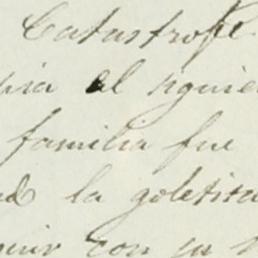 Catastrofe
el siguie
familia fue
la goletita
con su